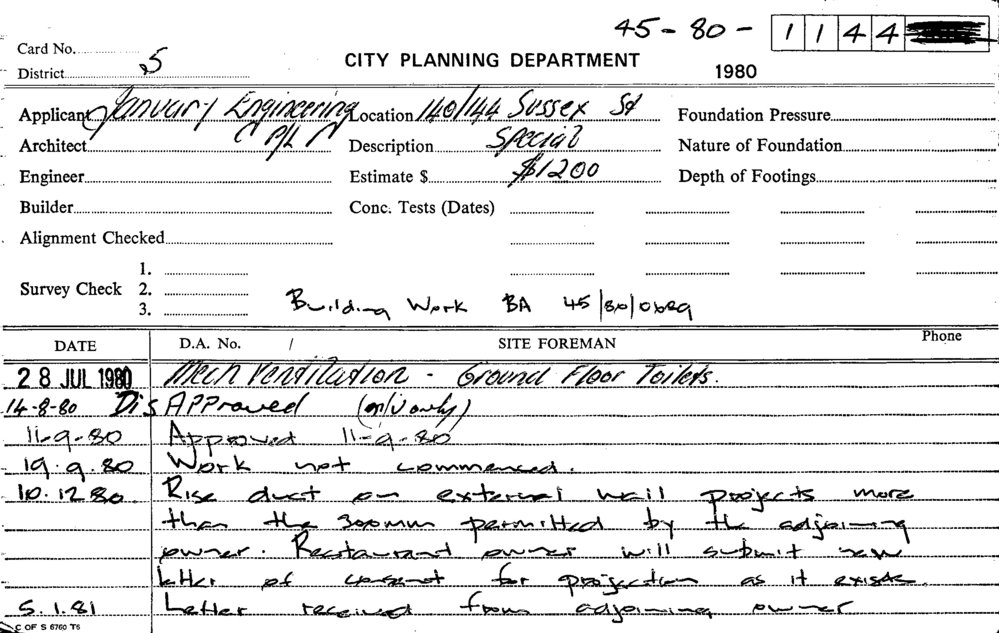 45-80- 1144
Card No.
District 5
CITY PLANNING DEPARTMENT
1980
Applicant January Engineering P/L
Location 140/144 Sussex St
Foundation Pressure
Architect
Description Special
Nature of Foundation
Engineer
Estimate $ $1200
Depth of Footings
Builder
Conc. Tests (Dates)
Alignment Checked
Survey Check 1.
2.
3.
Building Work BA 45/80/0689
DATE D.A. No. / SITE FOREMAN Phone
28 JUL 1980 Mech Ventilation - Ground Floor Toilets.
14-8-80 DisApproved (only)
11-9-80 Approved 11-9-80
19.9.80 Work not commenced.
10.12 80 Rise duct on external wall projects more
than the 300mm permitted by the adjoining
owner. Restaurant owner will submit new
letter of consent for projection as it exists.
5.1.81 Letter received from adjoining owner
C OF S 6760 T6